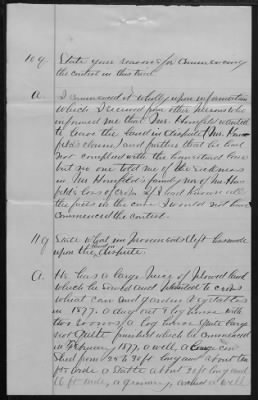 10 q. State your reasons for commencing
the contest in this case.
a. I commenced it wholly upon information
which I received from other persons who
informed me that Mr. Humpfeld wanted
to leave the land in dispute Mr. Hum
feld's claim, and further that he had
not complied with the homestead law
but no one told me of the sickness
in Mr. Humpfeld's family, nor of Mr. Hum
feld's loss of crop. If I had known all
the facts in the case I would not have
commenced the contest.
11 q State what improvements has made
upon the land in dispute.
A. He has a large piece of plowed land
which he and planted to crops
wheat corn and garden vegetables
in 1877. a dug out & log house with
two rooms, a log house quite large
not quite finished which he commenced
in February 1877, a well, a
Shed from 25 to 30 feet long and about ten
feet wide a stable about 20 feet long and
16 ft wide, a granary, a well